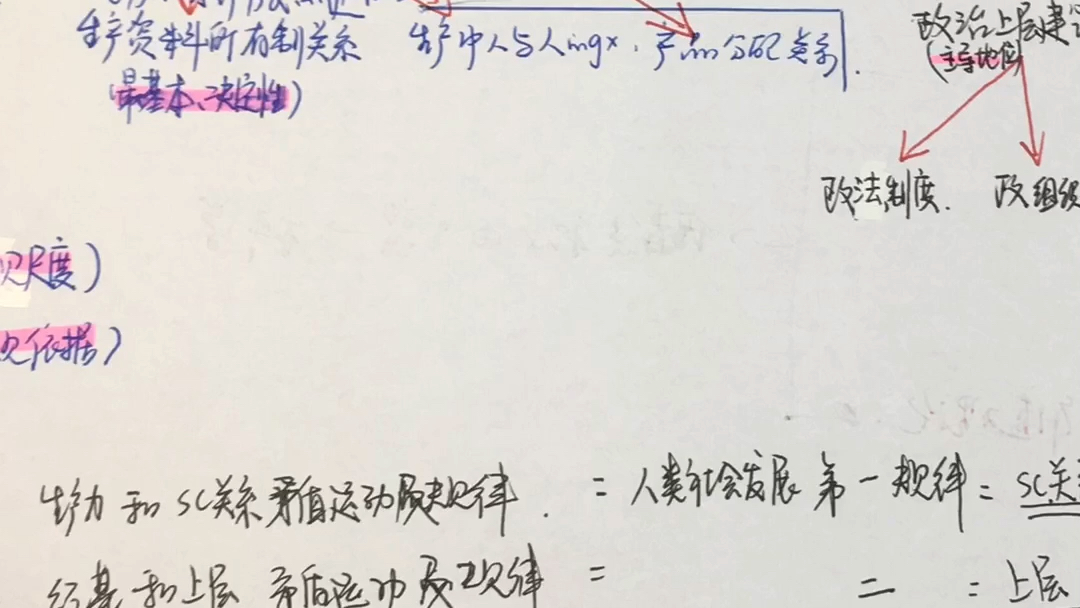 生产资料所有制关系 生产中人与人的gx. 产品分配关系.
(最基本、决定性)
政治上层建
(主导地位)
政法制度. 政组织
尺度)
依据)
生产力和SC关系矛盾运动及其规律. = 人类社会发展第一规律 = SC关
经基和上层 矛盾运动及其规律 = 二 = 上层